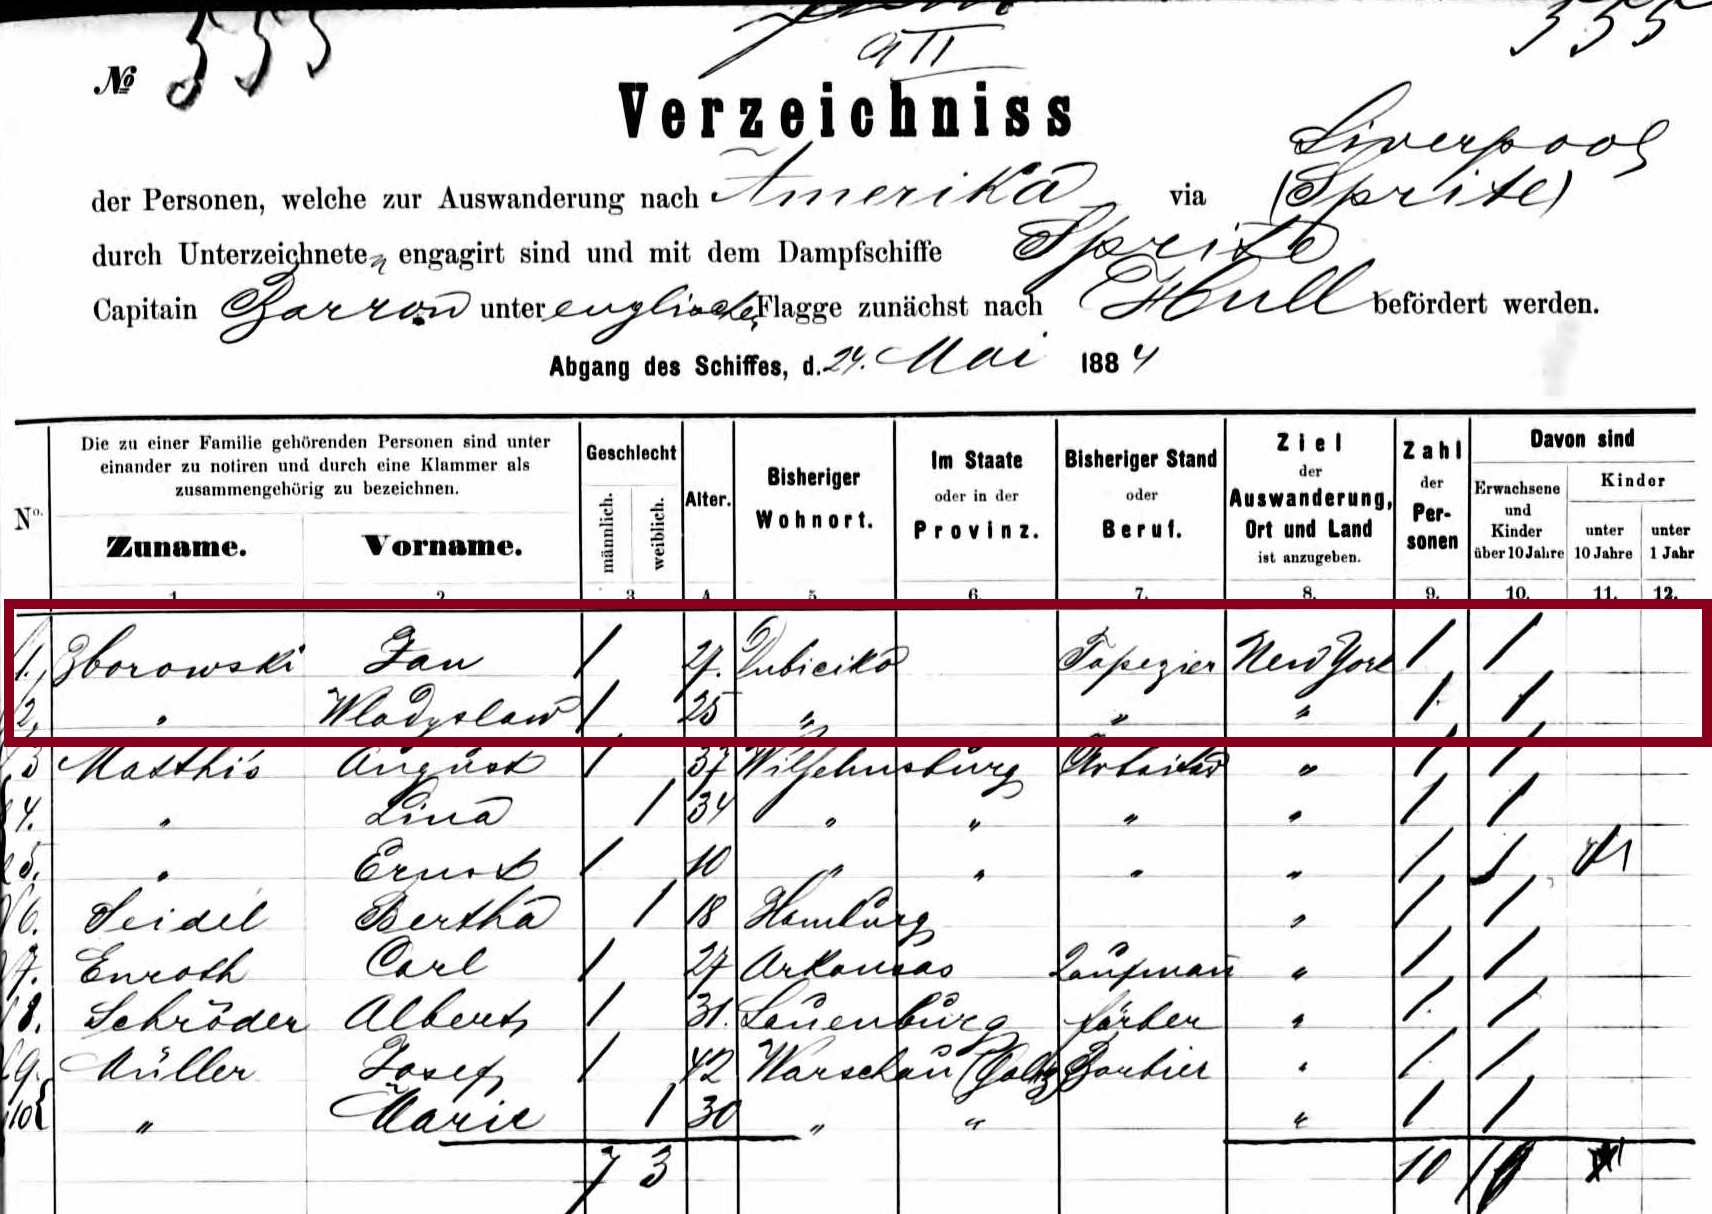 № 555 555
Verzeichniss
Liverpool
der Personen, welche zur Auswanderung nach Amerika via (Sprite)
durch Unterzeichneten engagirt sind und mit dem Dampfschiffe Sprite
Capitain Barron unter englischer Flagge zunächst nach Hull befördert werden.
Abgang des Schiffes, d. 24. Mai 1884
No. Die zu einer Familie gehörenden Personen sind unter einander zu notiren und durch eine Klammer als zusammengehörig zu bezeichnen. Geschlecht Alter. Bisheriger Wohnort. Im Staate oder in der Provinz. Bisheriger Stand oder Beruf. Ziel der Auswanderung, Ort und Land ist anzugeben. Zahl der Per-sonen Davon sind
Zuname. Vorname. männlich. weiblich. Erwachsene und Kinder über 10 Jahre Kinder unter 10 Jahre unter 1 Jahr
1. 2. 3 4. 5. 6. 7. 8. 9. 10. 11. 12.
1. Zborowski Jan 1 27. Dubicika Tapezier New York 1 1
2. " Wladyslaw 1 25 " " " 1 1
3 Matthis August 1 37 Wilhelmsburg Arbeiter " 1 1
4. " Lina 1 34 " " " " 1 1
5. " Ernst 1 10 " " " " 1 1
6. Seidel Bertha 1 18 Hamburg " 1 1
7. Enroth Carl 1 27 Arkansas Kaufmann " 1 1
8. Schröder Albert 1 31. Lauenburg Färber " 1 1
9. Müller Josef 1 42 Warschau Barbier " 1 1
10 " Marie 1 30 " " " 1 1
7 3 10